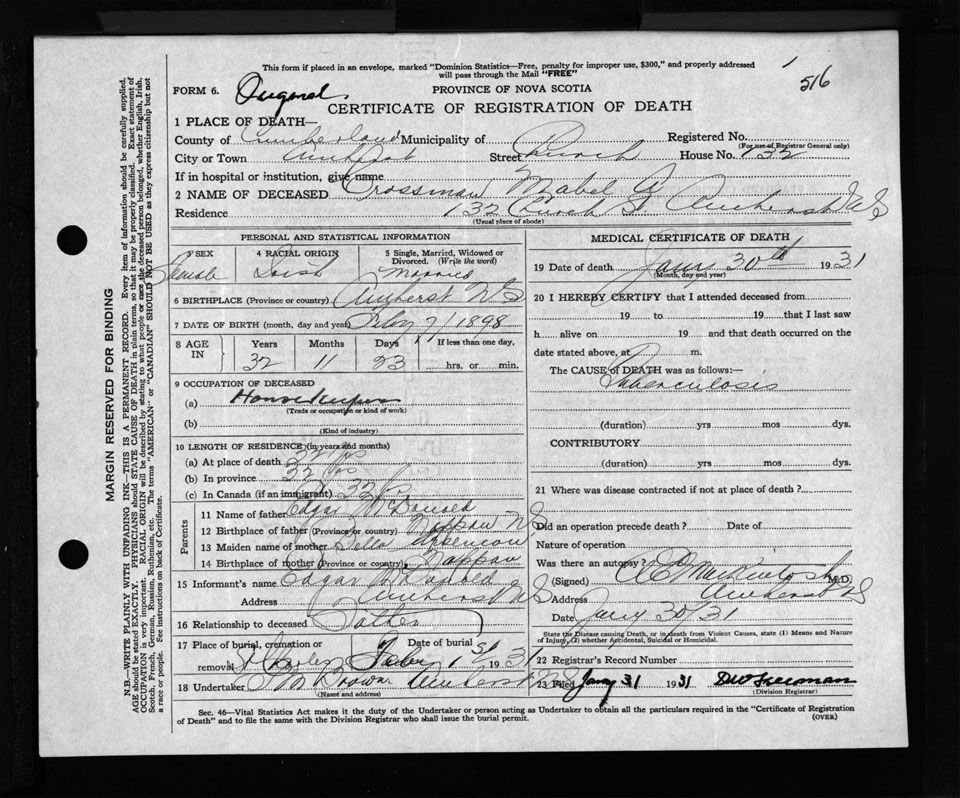 This form if placed in an envelope, marked "Dominion Statistics—Free, penalty for improper use, $300," and properly addressed
will pass through the Mail "FREE"
1
516
FORM 6.
PROVINCE OF NOVA SCOTIA
CERTIFICATE OF REGISTRATION OF DEATH
1 PLACE OF DEATH—
County of Cumberland Municipality of Registered No.
(For use of Registrar General only)
City or Town Amherst Street Church House No. 132
If in hospital or institution, give name
2 NAME OF DECEASED Crossman Mabel A
Residence 132 Church St Amherst NS
(Usual place of abode)
PERSONAL AND STATISTICAL INFORMATION
3 SEX 4 RACIAL ORIGIN 5 Single, Married, Widowed or Divorced. (Write the word)
Female Irish Married
6 BIRTHPLACE (Province or country) Amherst NS
7 DATE OF BIRTH (month, day and year) 7/1898
8 AGE IN Years Months Days If less than one day,
32 11 23 hrs. or min.
9 OCCUPATION OF DECEASED
(a) Housekeeper
(Trade or occupation or kind of work)
(b)
(Kind of industry)
10 LENGTH OF RESIDENCE (in years and months)
(a) At place of death 32 yrs
(b) In province 32 yrs
(c) In Canada (if an immigrant) 32
Parents
11 Name of father Edgar McDonald
12 Birthplace of father (Province or country) Nappan NS
13 Maiden name of mother
14 Birthplace of mother (Province or country) Nappan
15 Informant's name Edgar McDonald
Address Amherst NS
16 Relationship to deceased Father
17 Place of burial, cremation or removal Date of burial 1st 1931
18 Undertaker Brown Amherst NS
(Name and address)
MEDICAL CERTIFICATE OF DEATH
19 Date of death Jany 30th 1931
(Month, day and year)
20 I HEREBY CERTIFY that I attended deceased from
19 to 19 that I last saw
h alive on 19 and that death occurred on
date stated above, at m.
The CAUSE of DEATH was as follows:—
Tuberculosis
(duration) yrs mos dys.
CONTRIBUTORY
(duration) yrs mos dys.
21 Where was disease contracted if not at place of death?
Did an operation precede death? Date of
Nature of operation
Was there an autopsy?
(Signed) MacKintosh M.D.
Address Amherst NS
Date Jany 30/31
State the Disease causing Death, or in death from Violent Causes, state (1) Means and Nature
of Injury, (2) whether Accidental, Suicidal or Homicidal.
22 Registrar's Record Number
23 Filed Jany 31 1931
(Division Registrar)
Sec. 46—Vital Statistics Act makes it the duty of the Undertaker or person acting as Undertaker to obtain all the particulars required in the "Certificate of Registration
of Death" and to file the same with the Division Registrar who shall issue the burial permit.
(OVER)
MARGIN RESERVED FOR BINDING
N.B.—WRITE PLAINLY WITH UNFADING INK—THIS IS A PERMANENT RECORD. Every item of information should be carefully supplied.
AGE should be stated EXACTLY. PHYSICIANS should STATE CAUSE OF DEATH in plain terms, so that it may be properly classified. Exact statement of
OCCUPATION is very important. RACIAL ORIGIN will be described by stating to what people or race the deceased person belonged, whether English, Irish,
Scotch, French, German, Russian, Ruthenian, etc. The terms "AMERICAN" or "CANADIAN" SHOULD NOT BE USED as they express citizenship but not
a race or people. See instructions on back of Certificate.